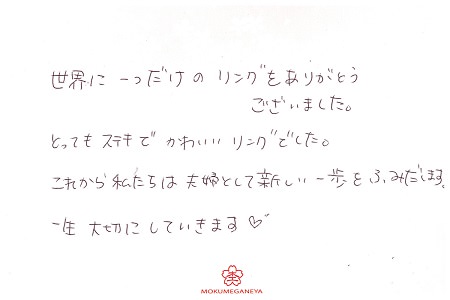 世界に一つだけのリングをありがとう
ございました。
とってもステキでかわいいリングでした。
これから私たちは夫婦として新しい一歩をふみだします。
一生大切にしていきます♡
MOKUMEGANEYA